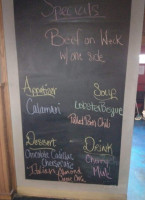 Specials
Beef on Weck
w/ one side
Appetizer
Calamari
Soup
Lobster Bisque
Pulled Pork Chili
Dessert
Chocolate
Cheesecake
Italian Almond
Drink
Cherry